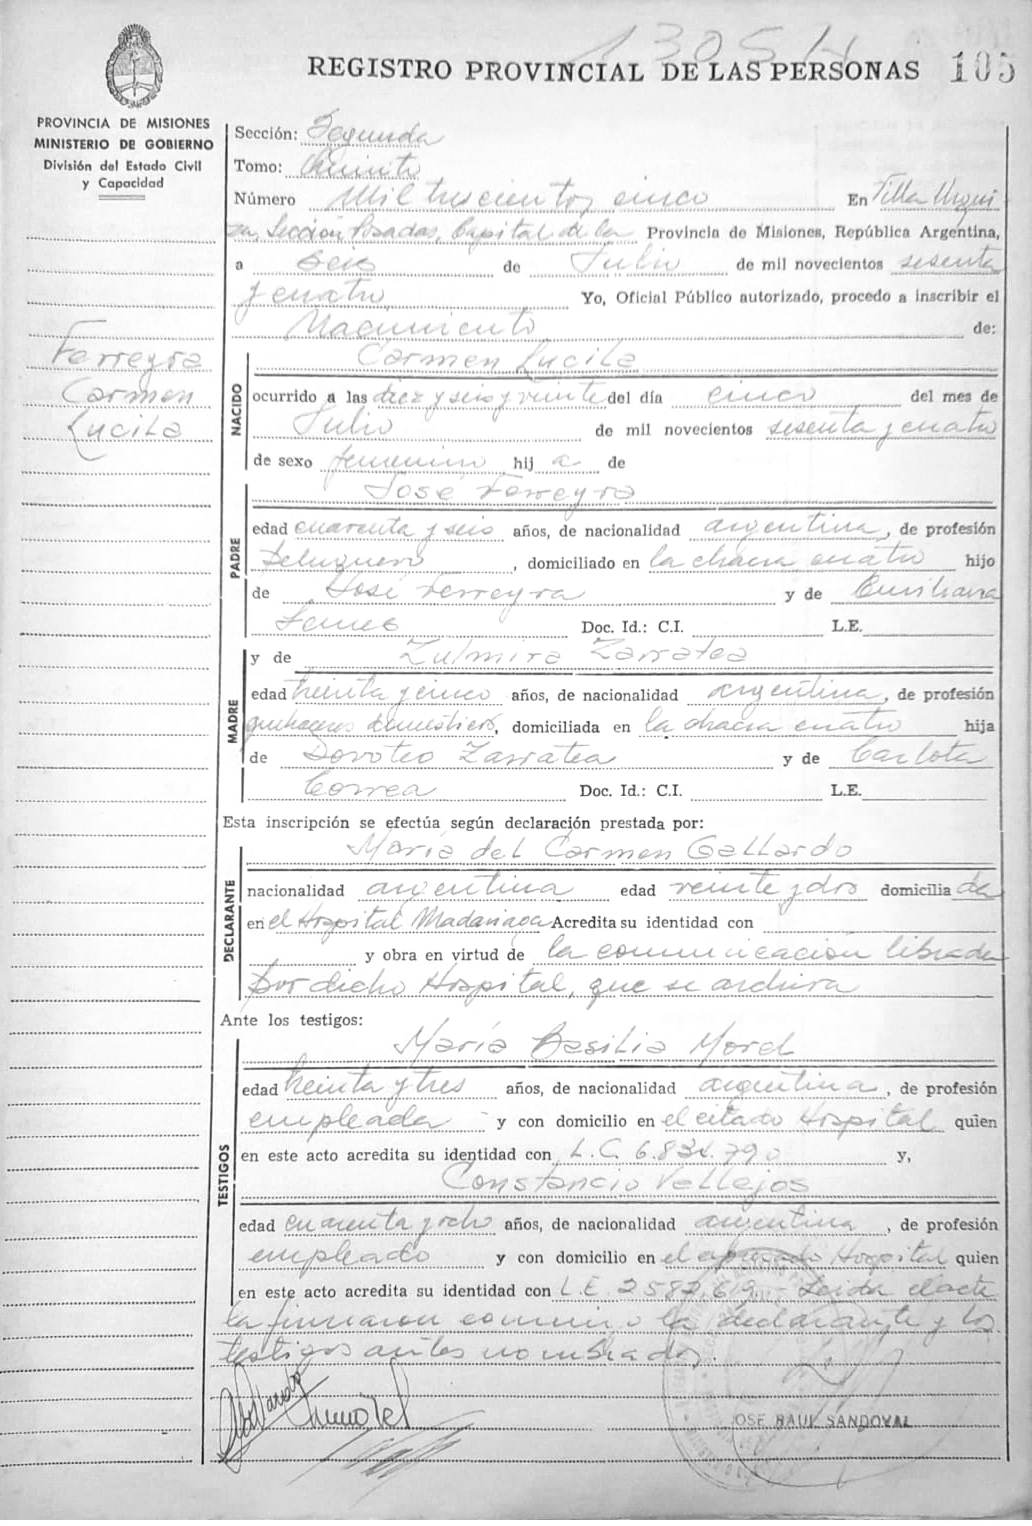 REGISTRO PROVINCIAL DE LAS PERSONAS 105
PROVINCIA DE MISIONES
MINISTERIO DE GOBIERNO
División del Estado Civil
y Capacidad
Sección: Segunda
Tomo: Quinto
Número Mil trescientos cinco En Villa Urqui
za, Sección Posadas, Capital de la Provincia de Misiones, República Argentina,
a seis de Julio de mil novecientos sesenta
y cuatro Yo, Oficial Público autorizado, procedo a inscribir el
Nacimiento de:
Ferreyra
Carmen
Lucila
NACIDO
Carmen Lucila
ocurrido a las diez y seis y veinte del día cinco del mes de
Julio de mil novecientos sesenta y cuatro
de sexo femenino hij a de
PADRE
José Ferreyra
edad cuarenta y seis años, de nacionalidad argentina, de profesión
Peluquero, domiciliado en la chacra cuatro hijo
de José Ferreyra y de
Doc. Id.: C.I. L.E.
MADRE
y de Zulmira Zarratea
edad treinta y cinco años, de nacionalidad argentina, de profesión
quehaceres domésticos, domiciliada en la chacra cuatro hija
de Doroteo Zarratea y de Carlota
Correa Doc. Id.: C.I. L.E.
Esta inscripción se efectúa según declaración prestada por:
DECLARANTE
María del Carmen Gallardo
nacionalidad argentina edad veinte y dos domicilia da
en el Hospital Madariaga Acredita su identidad con
y obra en virtud de la comunicación librada
por dicho Hospital, que se archiva
Ante los testigos:
TESTIGOS
María Basilia Morel
edad treinta y tres años, de nacionalidad argentina, de profesión
empleada y con domicilio en el citado Hospital quien
en este acto acredita su identidad con L.C. 6.834.790 y,
Constancio Vallejos
edad cuarenta y ocho años, de nacionalidad argentina, de profesión
empleado y con domicilio en el Hospital quien
en este acto acredita su identidad con L.E. 2587.619.- Leída el acta
la firmaron conmigo la declarante y los
testigos antes nombrados.
JOSE RAUL SANDOVAL